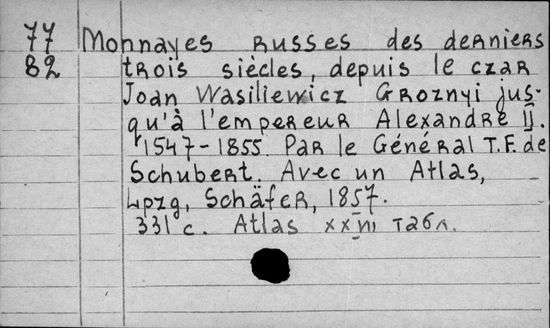 77 Monnayes russes des derniers
82 trois siècles, depuis le czar
Joan Wasiliewicz Groznyi jus-
qu'à l'empereur Alexandre II.
1547-1855. Par le Général T.F. de
Schubert. Avec un Atlas,
Lpzg, Schäfer, 1857.
331 c. Atlas XXVII табл.